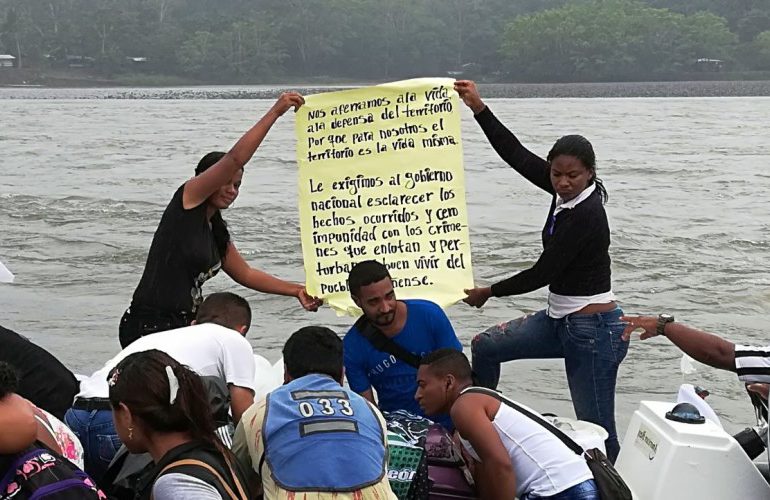 Nos aferramos a la vida
a la defensa del territorio
por que para nosotros el
territorio es la vida misma.
Le exigimos al gobierno
nacional esclarecer los
hechos ocurridos y cero
impunidad con los crime-
nes que enlutan y per-
turban buen vivir del
Pueblo
033